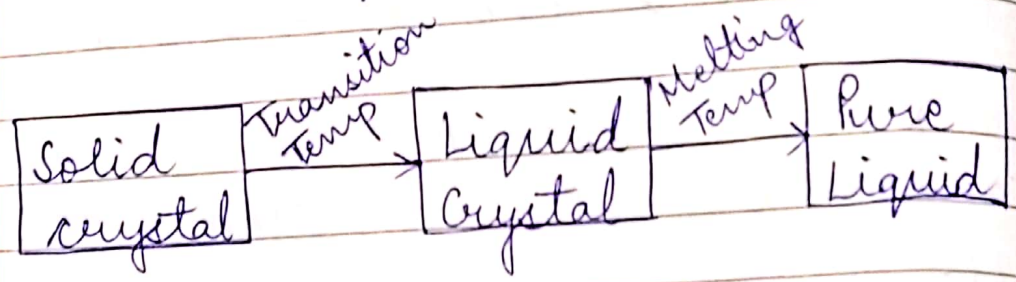 Solid
crystal
Transition
Temp
Liquid
Crystal
Melting
Temp
Pure
Liquid